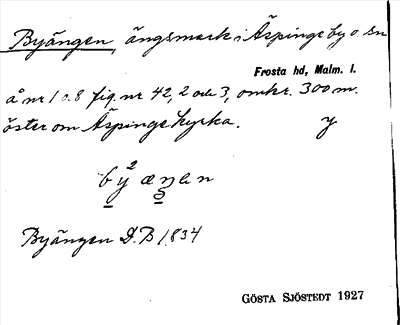 Byängen, ängsmark i Äspinge by o. sn
Frosta hd, Malm. l.
å nr 1 o. 8 fig. nr 42, 2 och 3, omkr. 300 m.
öster om Äspinge kyrka. y
by²æŋən
Byängen D.B 1834
GÖSTA SJÖSTEDT 1927